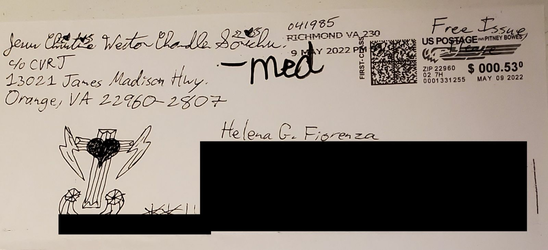 041985
Free Issue,
Jenn Christine Weston Chandle Sonichu.
RICHMOND VA 230
9 MAY 2022 PM
US POSTAGE PITNEY BOWES
c/o CVRJ
-med
FIRST-CLASS
13021 James Madison Hwy.
ZIP 22960
02 7H
0001331255
$ 000.53⁰
MAY 09 2022
Orange, VA 22960-2807
Helena G. Fiorenza